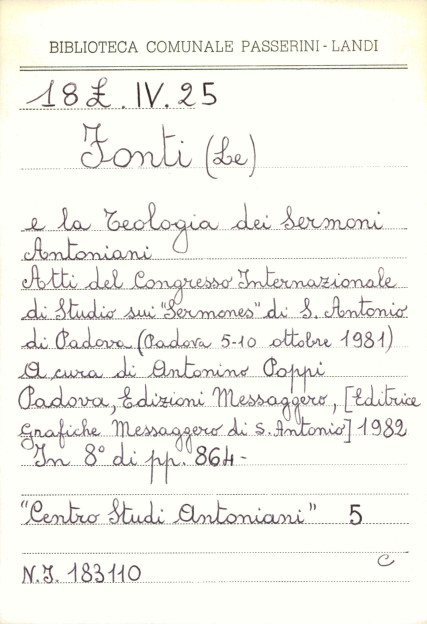 BIBLIOTECA COMUNALE PASSERINI-LANDI
18 £.IV.25
Fonti (Le)
e la Teologia dei Sermoni
Antoniani
Atti del Congresso Internazionale
di Studio sui "Sermones" di S. Antonio
di Padova (Padova 5-10 ottobre 1981)
A cura di Antonino Poppi
Padova, Edizioni Messaggero, [Editrice
Grafiche Messaggero di S. Antonio] 1982
In 8° di pp. 864-
"Centro Studi Antoniani" 5
C
N.I. 183110